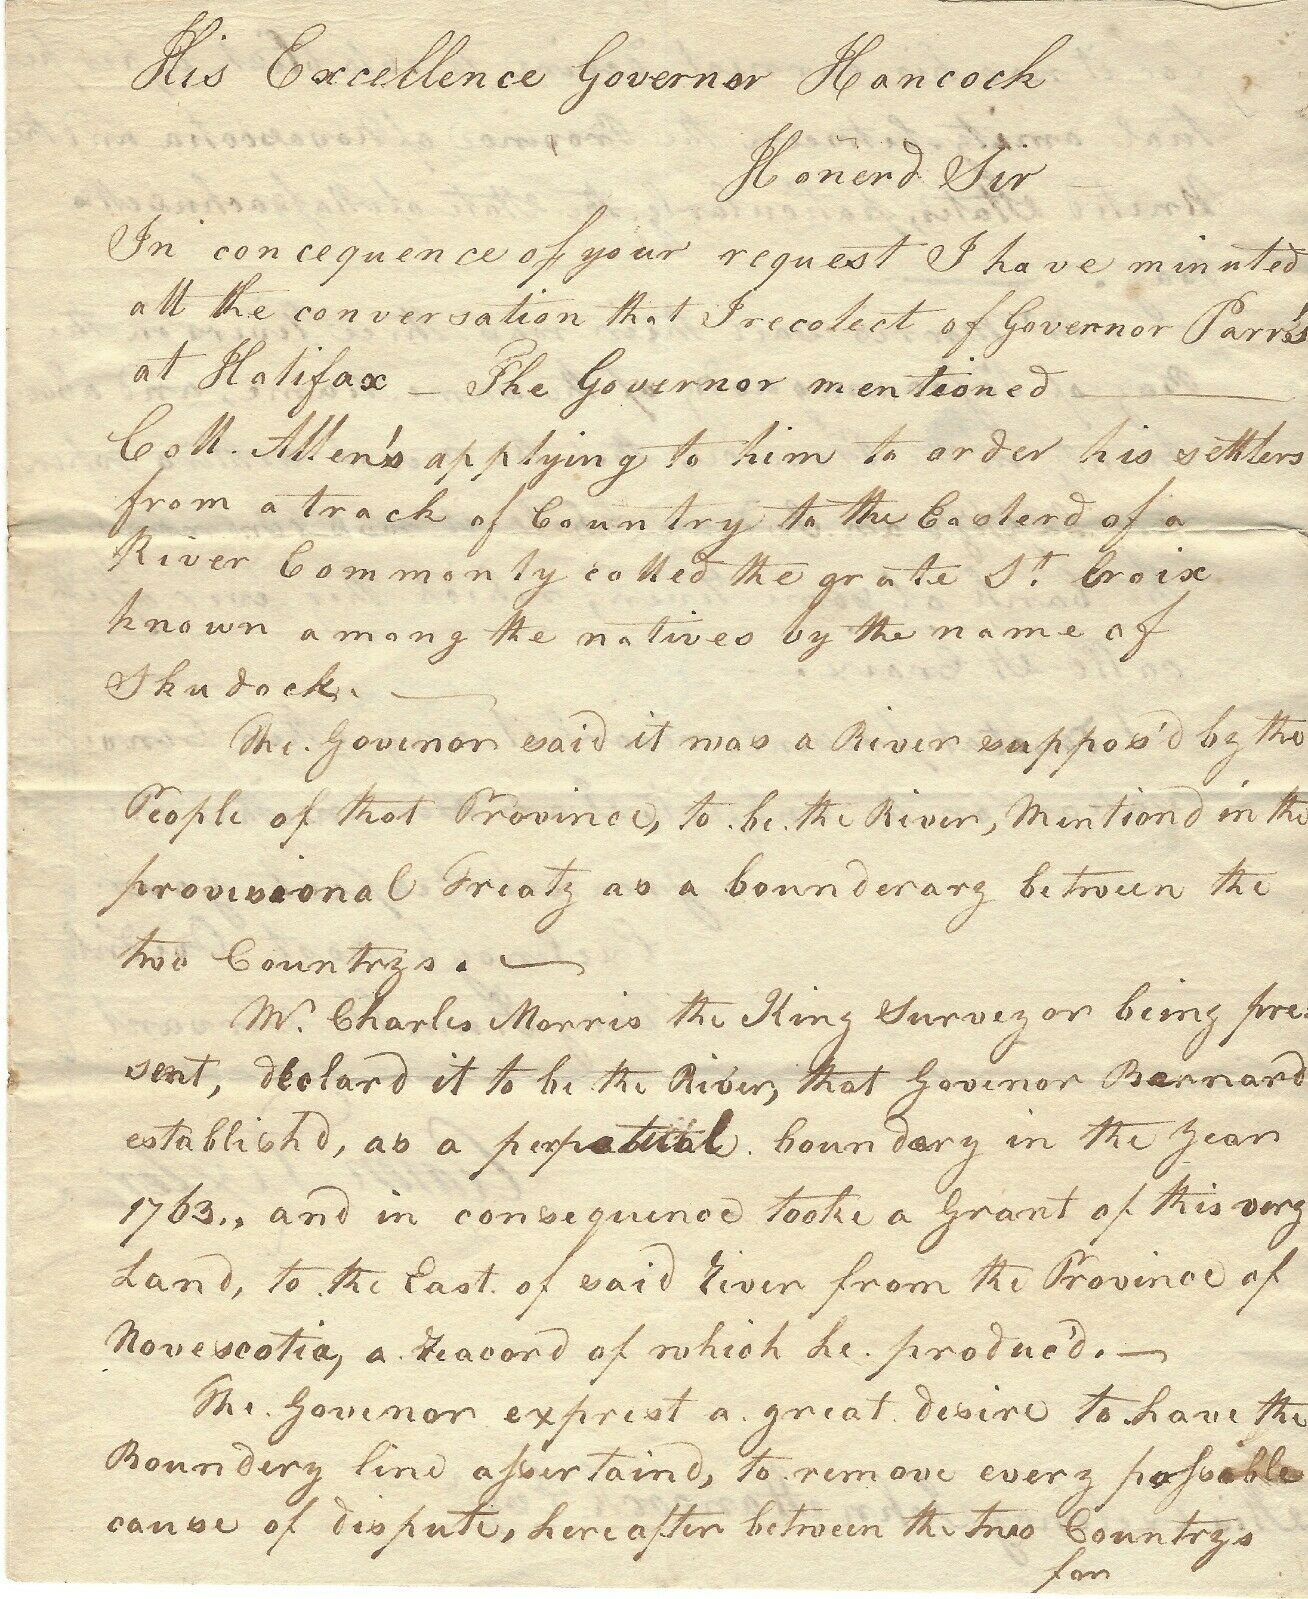 His Excellence Governor Hancock
Honerd Sir
In concequence of your request I have minuted
all the conversation that I recolect of Governor Parr's
at Halifax — The Governor mentioned —
Coll. Allen's applying to him to order his settlers
from a track of Country to the Easterd of a
River Commonly called the grate St. Croix
known among the natives by the name of
Skudock. —
The Govenor said it was a River suppos'd by the
People of that Province, to be the River, Mentiond in the
provisional Treaty as a bounderary between the
two Countrys. —
Mr. Charles Morris the King Surveyor being pre-
sent, declard it to be the River, that Govenor Barnard
establishd, as a perpatual boundary in the year
1763., and in consequence tooke a Grant of this very
Land, to the East of said River from the Province of
Novescotia, a Reacord of which he produc'd. —
The Govenor exprest a great desire to have the
Boundery line assertaind, to remove every possable
cause of dispute, hereafter between the two Countrys
for